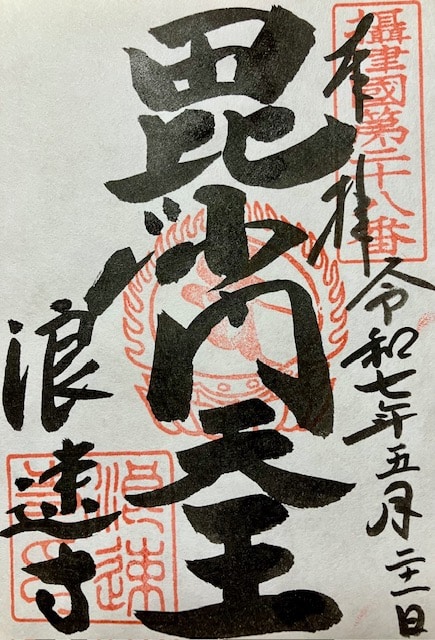 攝津國第三十八番
奉拝
令和七年五月二十一日
毘沙門天王
浪速寺